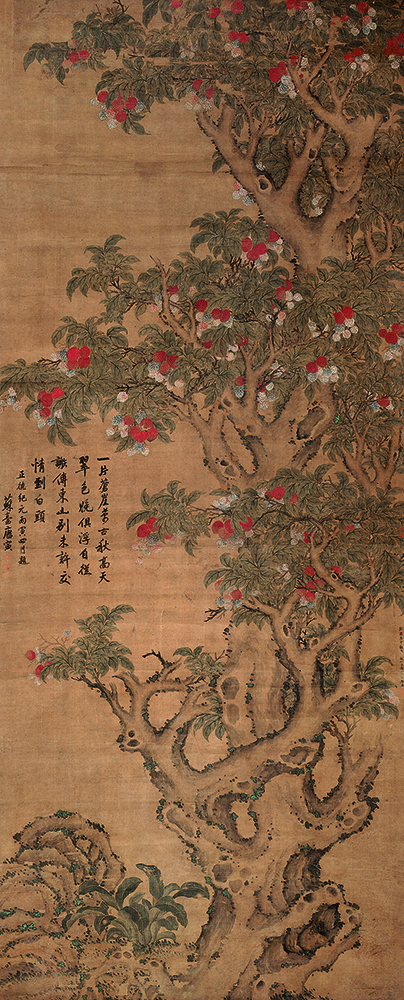 一片蒼崖万古秋高天
翠色晚俱浮自從
謝傅東山別未許交
情到白頭
正德紀元丙寅四月題
蘇臺唐寅